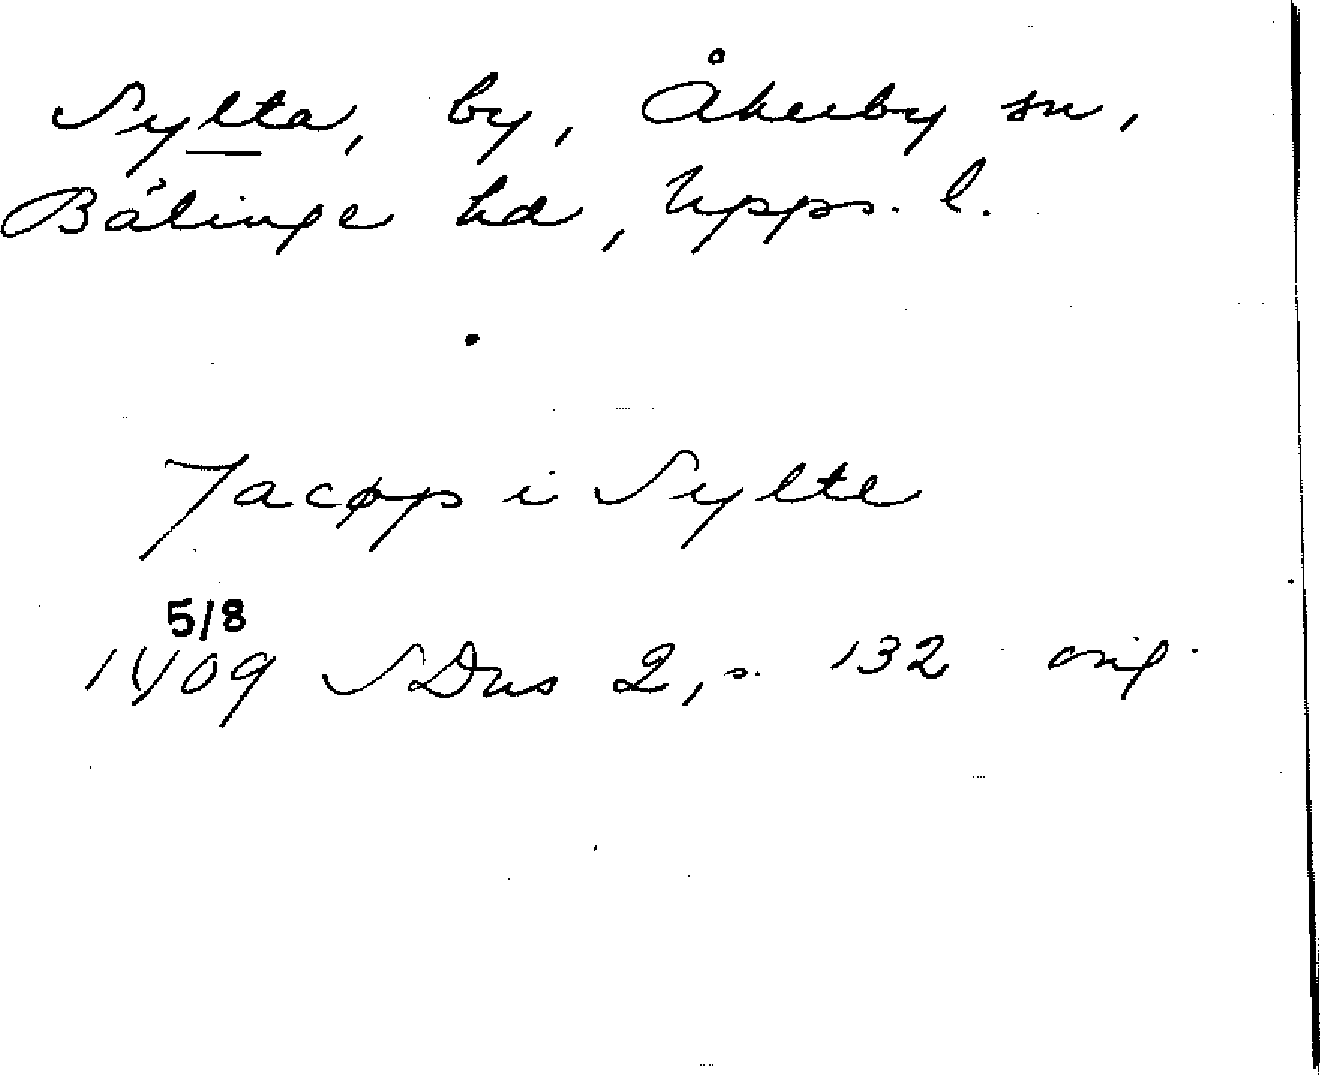 Sylta, by, Åkerby sn,
Bälinge hd, Upps. l.
Jacøp i Sylte
5/8
1409 SDns 2, s. 132 orig.